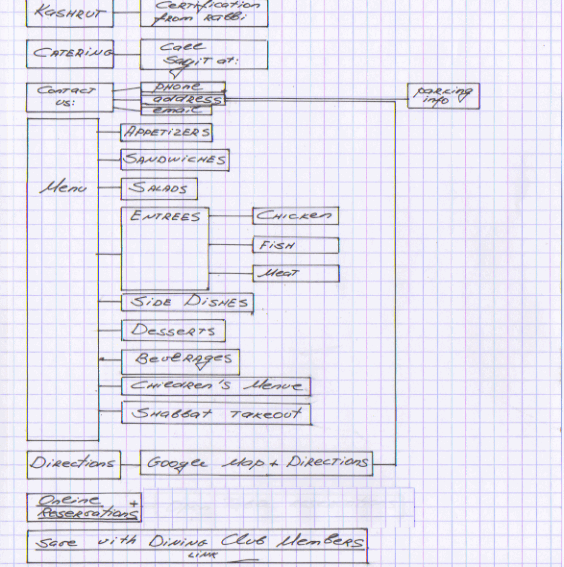 Kashrut
Certification
from Rabbi
Catering
Call
Sagit at:
Contact
us:
phone
address
email
parking
info
Menu
Appetizers
Sandwiches
Salads
Entrees
Chicken
Fish
Meat
Side Dishes
Desserts
Beverages
Children's Menue
Shabbat Takeout
Directions
Google Map + Directions
Online +
Reservations
Save with Dining Club Members
Link